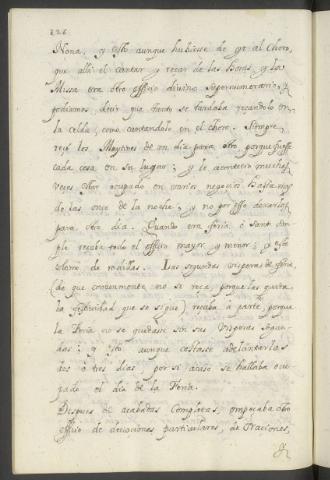 226
Nona, y esto aunque hubiese de yr al Choro,
que alli el cantar y reçar de las Horas, y la
Missa era otro officio divino supernumerario, y
podiamos decir que tanto se tardaba reçandolo en
la celda, como cantandolo en el choro. Siempre
reçó los Maytines de un dia para otro porque fuesse
cada cosa en su lugar; y le acontecia muchas
veçes estar ocupado en varios negocios hasta mas
de las once de la noche; y no por esso dexarlos
para otro dia. Quando era feria, ó sant sim
ple reçaba todo el officio mayor, y menor; y esto
 de rodillas. Las segundas visperas de feria,
(de que comunmente no se reça, porque las quita
la festividad que se sigue) reçaba á parte, porque
la Feria no se quedasse sin sus Visperas segun
das; y esto aunque costasse adelantarlas
dos ó tres dias, por si acaso se hallaba ocu
pado el dia de la Feria.
Despues de acabadas Completas, empeçaba otro
officio de devociones particulares, de Oraciones,